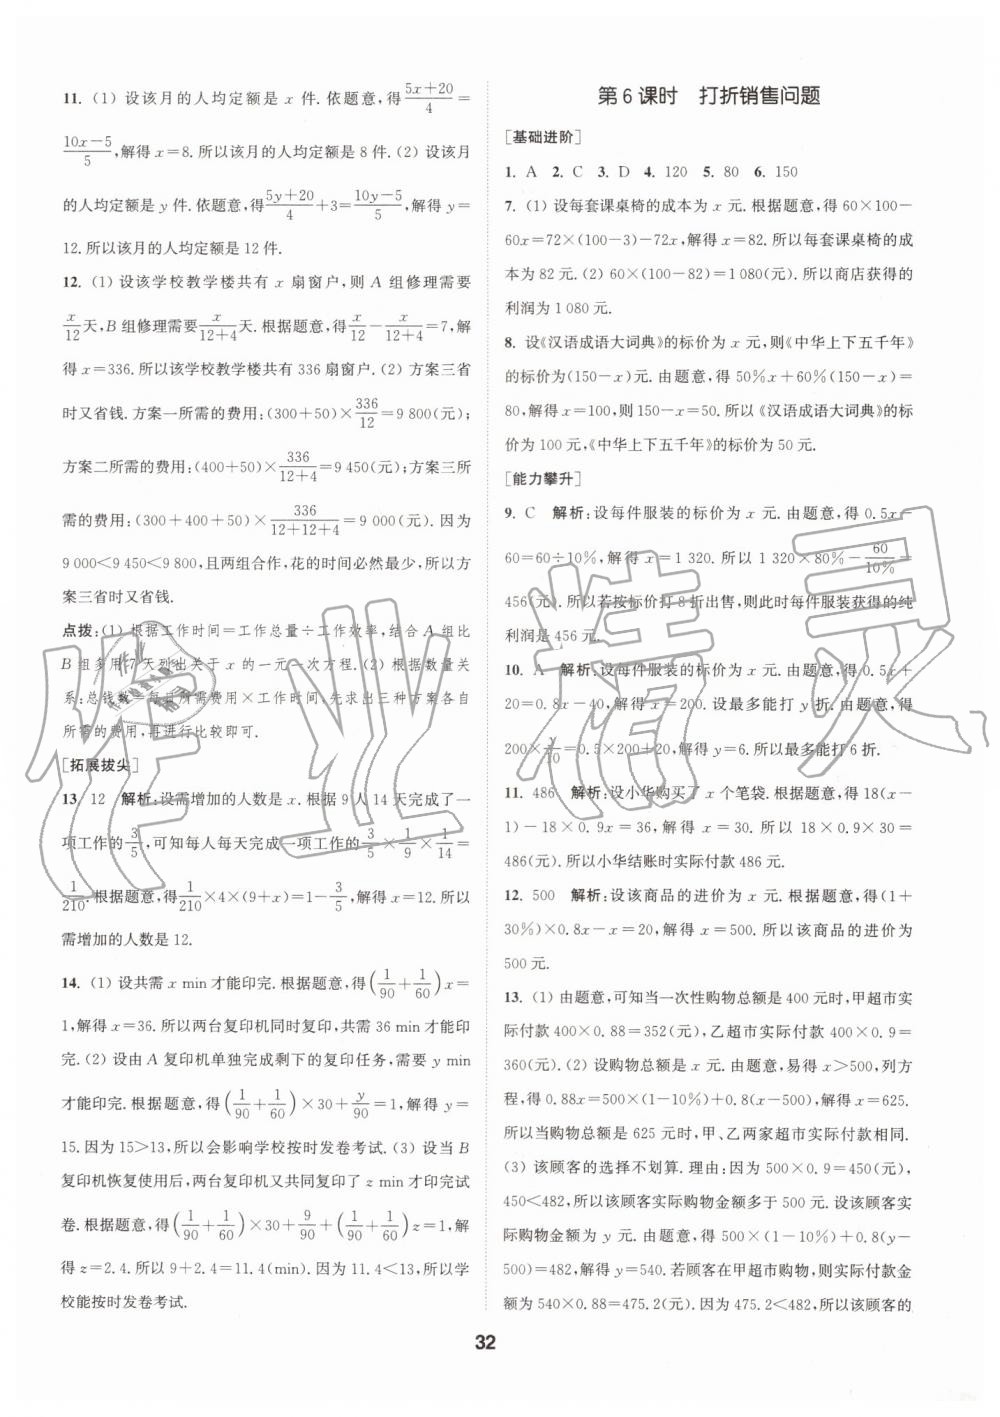 11. (1) 设该月的人均定额是 x 件. 依题意,得(5x+20)/4=
(10x-5)/5,解得 x=8. 所以该月的人均定额是 8 件. (2) 设该月
的人均定额是 y 件. 依题意,得(5y+20)/4+3=(10y-5)/5,解得 y=
12. 所以该月的人均定额是 12 件.
12. (1) 设该学校教学楼共有 x 扇窗户,则 A 组修理需要
x/12天,B 组修理需要x/(12+4)天. 根据题意,得x/12-x/(12+4)=7,解
得 x=336. 所以该学校教学楼共有 336 扇窗户. (2) 方案三省
时又省钱. 方案一所需的费用:(300+50)×336/12=9 800(元);
方案二所需的费用:(400+50)×336/(12+4)=9 450(元);方案三所
需的费用:(300+400+50)×336/(12+12+4)=9 000(元). 因为
9 000<9 450<9 800,且两组合作,花的时间必然最少,所以方
案三省时又省钱.
点拨:(1) 根据工作时间=工作总量÷工作效率,结合 A 组比
B 组多用 7 天列出关于 x 的一元一次方程. (2) 根据数量关
系:总钱数=每日所需费用×工作时间,先求出三种方案各自
所需的费用,再进行比较即可.
[拓展拔尖]
13. 12 解析:设需增加的人数是 x. 根据 9 人 14 天完成了一
项工作的3/5,可知每人每天完成一项工作的3/5×1/9×1/14=
1/210. 根据题意,得1/210×4×(9+x)=1-3/5,解得 x=12. 所以
需增加的人数是 12.
14. (1) 设共需 x min 才能印完. 根据题意,得(1/90+1/60)x=
1,解得 x=36. 所以两台复印机同时复印,共需 36 min 才能印
完. (2) 设由 A 复印机单独完成剩下的复印任务,需要 y min
才能印完. 根据题意,得(1/90+1/60)×30+y/90=1,解得 y=
15. 因为 15>13,所以会影响学校按时发卷考试. (3) 设当 B
复印机恢复使用后,两台复印机又共同复印了 z min 才印完试
卷. 根据题意,得(1/90+1/60)×30+9/90+(1/90+1/60)z=1,解
得 z=2.4. 所以 9+2.4=11.4(min). 因为 11.4<13,所以学
校能按时发卷考试.
第 6 课时 打折销售问题
[基础进阶]
1. A 2. C 3. D 4. 120 5. 80 6. 150
7. (1) 设每套课桌椅的成本为 x 元. 根据题意,得 60×100-
60x=72×(100-3)-72x,解得 x=82. 所以每套课桌椅的成
本为 82 元. (2) 60×(100-82)=1 080(元). 所以商店获得的
利润为 1 080 元.
8. 设《汉语成语大词典》的标价为 x 元,则《中华上下五千年》
的标价为(150-x)元. 由题意,得 50%x+60%(150-x)=
80,解得 x=100,则 150-x=50. 所以《汉语成语大词典》的标
价为 100 元,《中华上下五千年》的标价为 50 元.
[能力攀升]
9. C 解析:设每件服装的标价为 x 元. 由题意,得 0.5x-
60=60÷10%,解得 x=1 320. 所以 1 320×80%-60/10%=
456(元). 所以若按标价打 8 折出售,则此时每件服装获得的纯
利润是 456 元.
10. A 解析:设每件服装的标价为 x 元. 由题意,得 0.5x+
20=0.8x-40,解得 x=200. 设最多能打 y 折. 由题意,得
200×y/10=0.5×200+20,解得 y=6. 所以最多能打 6 折.
11. 486 解析:设小华购买了 x 个笔袋. 根据题意,得 18(x-
1)-18×0.9x=36,解得 x=30. 所以 18×0.9×30=
486(元). 所以小华结账时实际付款 486 元.
12. 500 解析:设该商品的进价为 x 元. 根据题意,得(1+
30%)×0.8x-x=20,解得 x=500. 所以该商品的进价为
500 元.
13. (1) 由题意,可知当一次性购物总额是 400 元时,甲超市实
际付款 400×0.88=352(元),乙超市实际付款 400×0.9=
360(元). (2) 设购物总额是 x 元. 由题意,易得 x>500,列方
程,得 0.88x=500×(1-10%)+0.8(x-500),解得 x=625.
所以当购物总额是 625 元时,甲、乙两家超市实际付款相同.
(3) 该顾客的选择不划算. 理由:因为 500×0.9=450(元),
450<482,所以该顾客实际购物金额多于 500 元. 设该顾客实
际购物金额为 y 元. 由题意,得 500×(1-10%)+0.8(y-
500)=482,解得 y=540. 若顾客在甲超市购物,则实际付款金
额为 540×0.88=475.2(元). 因为 475.2<482,所以该顾客的
32
作业精灵